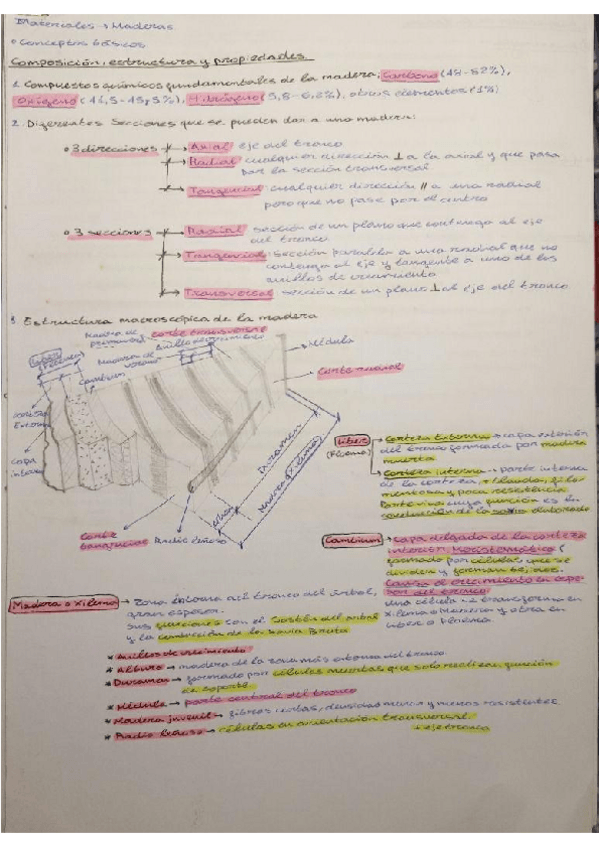 Materiales → Maderas
Conceptos básicos
Composición, estructura y propiedades
1. Compuestos químicos fundamentales de la madera, Carbono (48-52%),
Oxígeno (%), Hidrógeno (%), otros elementos (1%)
2. Diferentes secciones que se pueden dar a una madera:
3 direcciones
Axial eje del tronco
Radial cualquier dirección ⊥ a la axial y que pasa
por la sección transversal
Tangencial cualquier dirección // a una radial
pero que no pase por el centro
3 secciones
Radial sección de un plano que contenga al eje
del tronco
Tangencial sección paralela a una radial que no
contenga al eje y tangente a uno de los
anillos de crecimiento
Transversal sección de un plano ⊥ al eje del tronco
3. Estructura macroscópica de la madera
Madera de
primavera
corte transversal
Anillo de crecimiento
Madera de
verano
Cambium
Médula
Corte radial
Corteza
Externa
Capa
interna
Duramen
Madera (Xilema)
Corte
tangencial
Radio leñoso
Liber
(Floema)
→ Corteza Externa → capa exterior
del tronco formada por madera
muerta
→ Corteza interna → parte interna
de la corteza,
y poca resistencia
cuya función es la
conducción de la savia elaborada
Cambium → capa delgada de la corteza
interior, meristemática (
formado por células que se
dividen y forman
Causa el crecimiento en
del tronco
una célula se transforma en
xilema o Madera y otra en
liber o floema.
Madera o Xilema → Zona interna del tronco del árbol,
gran espesor.
Sus funciones son el Sostén del árbol
y la conducción de la savia Bruta
* Anillos de crecimiento
* Albura → madera de la zona más externa del tronco
* Duramen → formado por células muertas que solo realizan función
de soporte
* Médula → parte central del tronco
* Madera juvenil → fibras cortas, densidad menor y menos resistentes
* Radio leñoso → células en orientación transversal